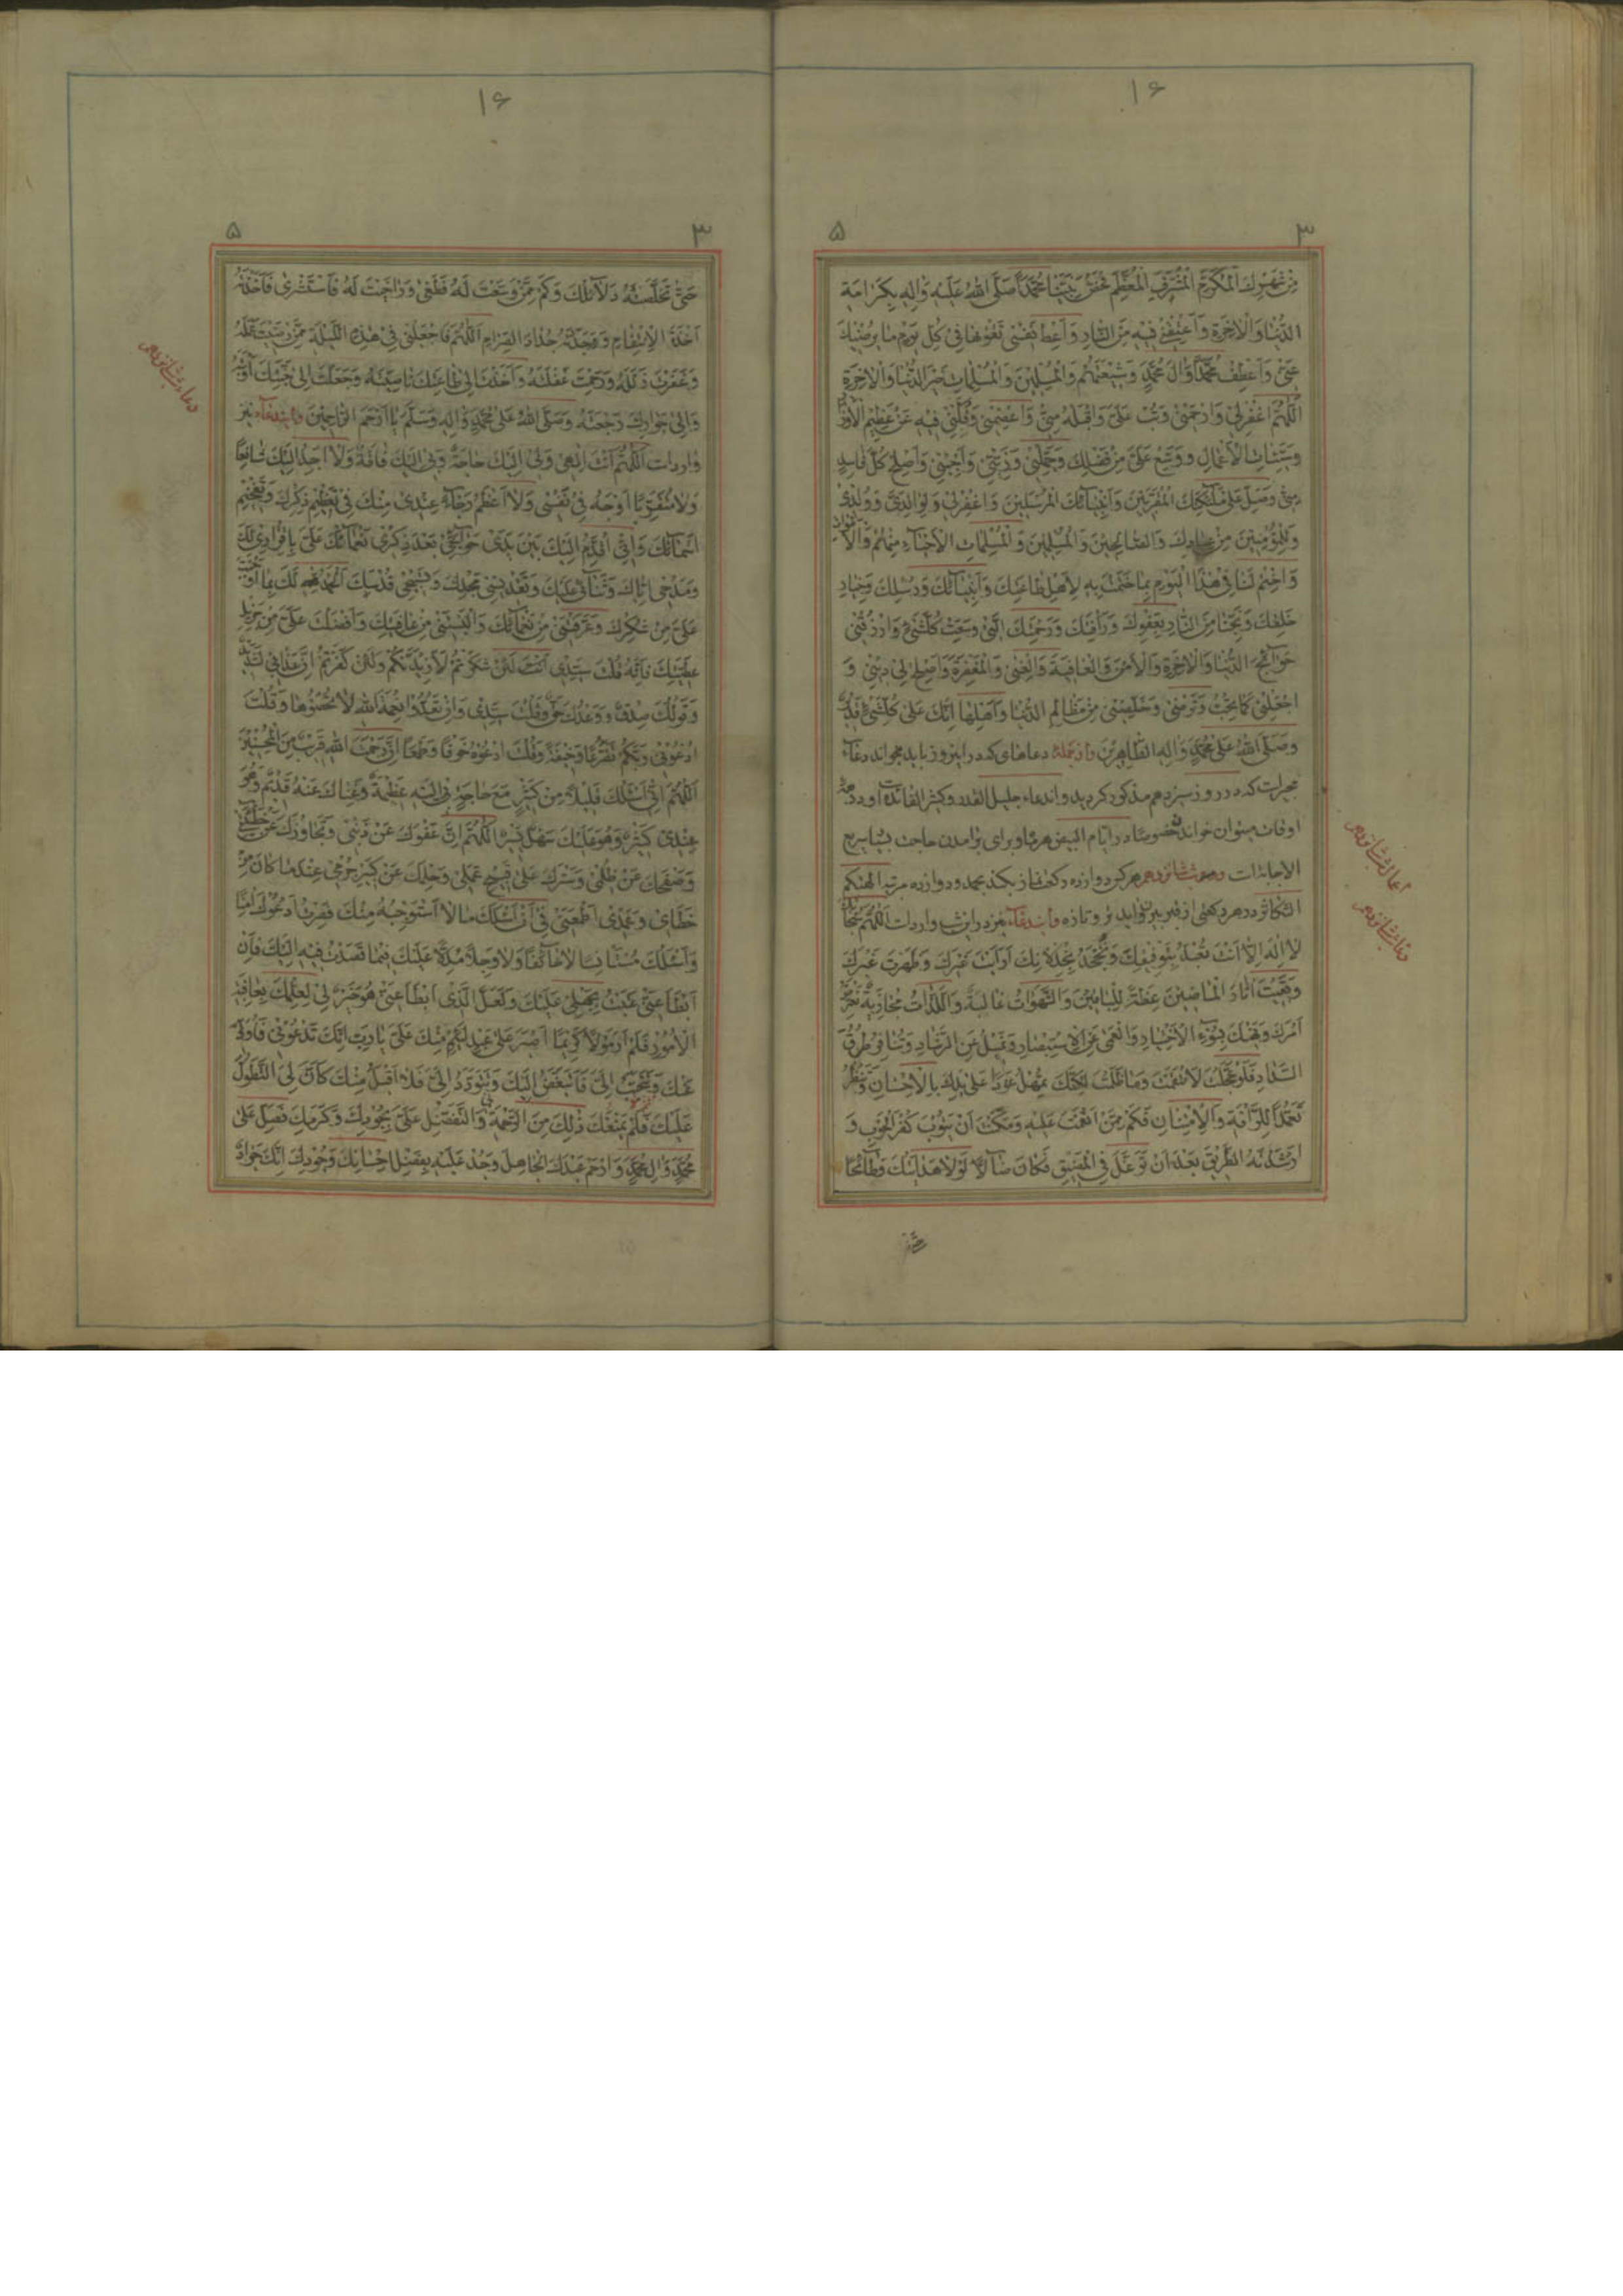 ۱۶
۳ ۵
مِنْ شَهْرِكَ الْمُكَرَّمِ الْمُشَرَّفِ الْمُعَظَّمِ بِحَقِّ نَبِيِّنَا مُحَمَّدٍ صَلَّى اللهُ عَلَيْهِ وَآلِهِ بِكَرَامَةِ
الدُّنْيَا وَالْآخِرَةِ وَأَعْتِقْنِي فِيهِ مِنَ النَّارِ وَأَعْطِ نَفْسِي تَقْوٰهَا فِي كُلِّ يَوْمٍ مَا يُرْضِيكَ
عَنِّي وَاعْطِفْ مُحَمَّدًا وَآلَ مُحَمَّدٍ وَشِيعَتَهُمْ وَالْمُسْلِمِينَ وَالْمُسْلِمَاتِ خَيْرَ الدُّنْيَا وَالْآخِرَةِ
اللّٰهُمَّ اغْفِرْ لِي وَارْحَمْنِي وَتُبْ عَلَيَّ وَاقْبَلْهُ مِنِّي وَاعْصِمْنِي فِيهِ عَنْ عَظِيمِ الْأَوْزَارِ
وَسَيِّئَاتِ الْأَعْمَالِ وَوَسِّعْ عَلَيَّ مِنْ فَضْلِكَ وَجَمِّلْنِي وَزَيِّنِّي وَأَصْلِحْ كُلَّ فَاسِدٍ
مِنِّي وَصَلِّ عَلَى مَلٰٓئِكَتِكَ الْمُقَرَّبِينَ وَأَنْبِيَآئِكَ الْمُرْسَلِينَ وَاغْفِرْ لِي وَلِوَالِدَيَّ وَوُلْدِي
وَلِلْمُؤْمِنِينَ مِنْ عِبَادِكَ وَالصَّالِحِينَ وَالْمُسْلِمِينَ وَالْمُسْلِمَاتِ الْأَحْيَآءِ مِنْهُمْ وَالْأَمْوَاتِ
وَاخْتِمْ لَنَا فِي هٰذَا الْيَوْمِ بِمَا خَتَمْتَ بِهِ لِأَهْلِ طَاعَتِكَ وَأَنْبِيَآئِكَ وَرُسُلِكَ وَخِيَارِ
خَلْقِكَ وَنَجِّنَا مِنَ النَّارِ بِعَفْوِكَ وَرَأْفَتِكَ وَرَحْمَتِكَ الَّتِي وَسِعَتْ كُلَّ شَيْءٍ وَارْزُقْنِي
حَوَآئِجَ الدُّنْيَا وَالْآخِرَةِ وَالْأَمْنَ وَالْعَافِيَةَ وَالْغِنٰى وَالْمَغْفِرَةَ وَأَصْلِحْ لِي دِينِي وَ
اجْعَلْنِي كَمَا تُحِبُّ وَتَرْضٰى وَخَلِّصْنِي مِنْ مَظَالِمِ الدُّنْيَا وَأَهْلِهَا إِنَّكَ عَلَى كُلِّ شَيْءٍ قَدِيرٌ
وَصَلَّى اللهُ عَلَى مُحَمَّدٍ وَآلِهِ الطَّاهِرِينَ وازجمله دعاهای که در این روز باید بخواند دعآء
مجیر است که در روز سیزدهم مذکور گردید و این دعاء جلیل القدر و کثیر الفائده است و در همه
اوقات میتوان خواند خصوصا در ایام البیض هر ماه و برای برآمدن حاجت بسیار سریع
الاجابة است وصوم شانزدهم هرکس دوازده رکعت نماز بکند بحمد و دوازده مرتبه الهیکم
التکاثر در هر رکعتی از قبر بیرون آید تر و تازه واین دعآء نیز در این شب وارد است اللّٰهُمَّ سُبْحَانَكَ
لَا إِلٰهَ إِلَّا أَنْتَ تُعْبَدُ بِتَوْفِيقِكَ وَتُجْحَدُ بِخِذْلَانِكَ أَرَيْتَ عِبَرَكَ وَظَهَرَتْ غِيَرُكَ
وَبَقِيَتْ آثَارُ الْمَاضِينَ عِظَةً لِلْبَاقِينَ وَالشَّهَوَاتُ غَالِبَةٌ وَاللَّذَّاتُ مُجَاذِبَةٌ نَعْتَرِضُ
أَمْرَكَ وَنَهْيَكَ بِسُوءِ الْاخْتِيَارِ وَالْعَمٰى عَنِ الْاسْتِبْصَارِ وَنَمِيلُ عَنِ الرَّشَادِ وَنُنَافِرُ طُرُقَ
السَّدَادِ فَلَوْ عَجَّلْتَ لَانْتَقَمْتَ وَمَا ظَلَمْتَ لٰكِنَّكَ تُمْهِلُ عَوْدًا عَلَى يَدِكَ بِالْإِحْسَانِ وَتُنْظِرُ
تَغَمُّدًا لِلرَّأْفَةِ وَالْامْتِنَانِ فَكَمْ مِمَّنْ أَنْعَمْتَ عَلَيْهِ وَمَكَّنْتَ أَنْ يَتُوبَ كُفْرَ الْحَوْبِ وَ
أَرْشَدْتَهُ الطَّرِيقَ بَعْدَ أَنْ تَوَغَّلَ فِي الْمَضِيقِ فَكَانَ ضَآلًّا لَوْلَا هِدَايَتُكَ وَطَآئِحًا
اعمال شب شانزدهم
دعاء شب شانزدهم
۱۶
۳ ۵
حَتّٰى تَخَلَّصَتْهُ دَلَآئِلُكَ وَكَمْ مِمَّنْ وَسَّعْتَ لَهُ فَطَغٰى وَرَاخَيْتَ لَهُ فَاسْتَشْرٰى فَأَخَذْتَهُ
أَخْذَةَ الْانْتِقَامِ وَجَذَذْتَهُ جُذَاذَ الصِّرَامِ اللّٰهُمَّ فَاجْعَلْنِي فِي هٰذِهِ اللَّيْلَةِ مِمَّنْ رَضِيتَ عَمَلَهُ
وَغَفَرْتَ زَلَلَهُ وَرَحِمْتَ غَفْلَتَهُ وَأَخَذْتَ إِلٰى طَاعَتِكَ نَاصِيَتَهُ وَجَعَلْتَ إِلٰى جَنَّتِكَ أَوْبَتَهُ
وَإِلٰى جِوَارِكَ رَجْعَتَهُ وَصَلَّى اللهُ عَلَى مُحَمَّدٍ وَآلِهِ وَسَلَّمَ يَا أَرْحَمَ الرَّاحِمِينَ واین دعآء نیز
وارد است اللّٰهُمَّ أَنْتَ إِلٰهِي وَلِي إِلَيْكَ حَاجَةٌ وَبِي إِلَيْكَ فَاقَةٌ وَلَا أَجِدُ إِلَيْكَ شَافِعًا
وَلَا مُتَقَرَّبًا أَوْجَهَ فِي نَفْسِي وَلَا أَعْظَمَ رَجَآءً عِنْدِي مِنْكَ فِي تَعْظِيمِ ذِكْرِكَ وَتَفْخِيمِ
أَسْمَآئِكَ وَإِنِّي أُقَدِّمُ إِلَيْكَ بَيْنَ يَدَيْ حَوَآئِجِي بَعْدَ ذِكْرِي نَعْمَآئَكَ عَلَيَّ بِإِقْرَارِي لَكَ
وَمَدْحِي إِيَّاكَ وَثَنَآئِي عَلَيْكَ وَتَقْدِيسِي مَجْدَكَ وَتَسْبِيحِي قُدْسَكَ الْحَمْدُ لَكَ بِمَا أَوْجَبْتَ
عَلَيَّ مِنْ شُكْرِكَ وَعَرَّفْتَنِي مِنْ نَعْمَآئِكَ وَأَلْبَسْتَنِي مِنْ عَافِيَتِكَ وَأَفْضَلْتَ عَلَيَّ مِنْ جَزِيلِ
عَطِيَّتِكَ فَإِنَّكَ قُلْتَ سَيِّدِي لَئِنْ شَكَرْتُمْ لَأَزِيدَنَّكُمْ وَلَئِنْ كَفَرْتُمْ إِنَّ عَذَابِي لَشَدِيدٌ
وَقَوْلُكَ صِدْقٌ وَوَعْدُكَ حَقٌّ وَقُلْتَ سَيِّدِي وَإِنْ تَعُدُّوا نِعْمَةَ اللهِ لَا تُحْصُوهَا وَقُلْتَ
ادْعُوا رَبَّكُمْ تَضَرُّعًا وَخِيفَةً وَقُلْتَ ادْعُوهُ خَوْفًا وَطَمَعًا إِنَّ رَحْمَتَ اللهِ قَرِيبٌ مِنَ الْمُحْسِنِينَ
اللّٰهُمَّ إِنِّي أَسْئَلُكَ قَلِيلًا مِنْ كَثِيرٍ مَعَ حَاجَةٍ بِي إِلَيْهِ عَظِيمَةٍ وَغِنَاكَ عَنْهُ قَدِيمٌ وَهُوَ
عِنْدِي كَثِيرٌ وَهُوَ عَلَيْكَ سَهْلٌ يَسِيرٌ اللّٰهُمَّ إِنَّ عَفْوَكَ عَنْ ذَنْبِي وَتَجَاوُزَكَ عَنْ خَطِيئَتِي
وَصَفْحَكَ عَنْ ظُلْمِي وَسَتْرَكَ عَلَى قَبِيحِ عَمَلِي وَحِلْمَكَ عَنْ كَبِيرِ جُرْمِي عِنْدَ مَا كَانَ مِنْ
خَطَايَ وَعَمْدِي أَطْمَعَنِي فِي أَنْ أَسْئَلَكَ مَا لَا أَسْتَوْجِبُهُ مِنْكَ فَصِرْتُ أَدْعُوكَ آمِنًا
وَأَسْئَلُكَ مُسْتَأْنِسًا لَا خَآئِفًا وَلَا وَجِلًا مُدِلًّا عَلَيْكَ فِيمَا قَصَدْتُ فِيهِ إِلَيْكَ فَإِنْ
أَبْطَأَ عَنِّي عَتَبْتُ بِجَهْلِي عَلَيْكَ وَلَعَلَّ الَّذِي أَبْطَأَ عَنِّي هُوَ خَيْرٌ لِي لِعِلْمِكَ بِعَاقِبَةِ
الْأُمُورِ فَلَمْ أَرَ مَوْلًا كَرِيمًا أَصْبَرَ عَلَى عَبْدٍ لَئِيمٍ مِنْكَ عَلَيَّ يَا رَبِّ إِنَّكَ تَدْعُونِي فَأُوَلِّي
عَنْكَ وَتَتَحَبَّبُ إِلَيَّ فَأَتَبَغَّضُ إِلَيْكَ وَتَتَوَدَّدُ إِلَيَّ فَلَا أَقْبَلُ مِنْكَ كَأَنَّ لِيَ التَّطَوُّلَ
عَلَيْكَ فَلَمْ يَمْنَعْكَ ذٰلِكَ مِنَ الرَّحْمَةِ وَالتَّفَضُّلِ عَلَيَّ بِجُودِكَ وَكَرَمِكَ فَصَلِّ عَلَى
مُحَمَّدٍ وَآلِ مُحَمَّدٍ وَارْحَمْ عَبْدَكَ الْجَاهِلَ وَجُدْ عَلَيْهِ بِفَضْلِ إِحْسَانِكَ وَجُودِكَ إِنَّكَ جَوَادٌ
دعاء شب شانزدهم